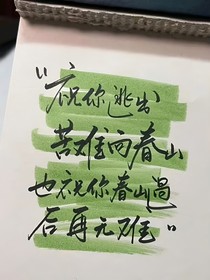 "祝你逃出
苦难向春山
也祝你春山过
后再无难"